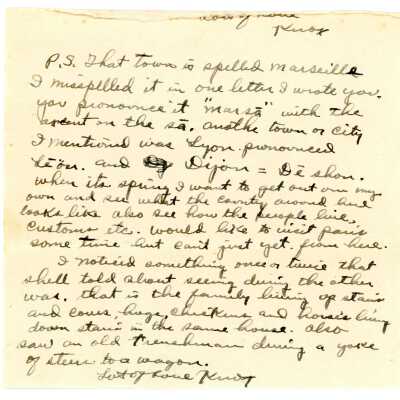 Lots of love
Knox
P.S. That town is spelled Marseille
I misspelled it in one letter I wrote you.
you pronounce it "Marsā" with the
accent on the sā. another town or city
I mentioned was Lyon. pronounced
and Dijon = Dē shon.
when its spring I want to get out on my
own and see what the county around here
looks like also see how the people live,
customs etc. would like to visit paris
some time but can't just yet. from here.
I noticed something once or twice that
shell told about seeing during the other
war. that is the family living up stairs
and cows, hogs, chickens and horses living
down stairs in the same house. also
saw an old Frenchman driving a yoke
of steers to a wagon.
Lots of love Knox